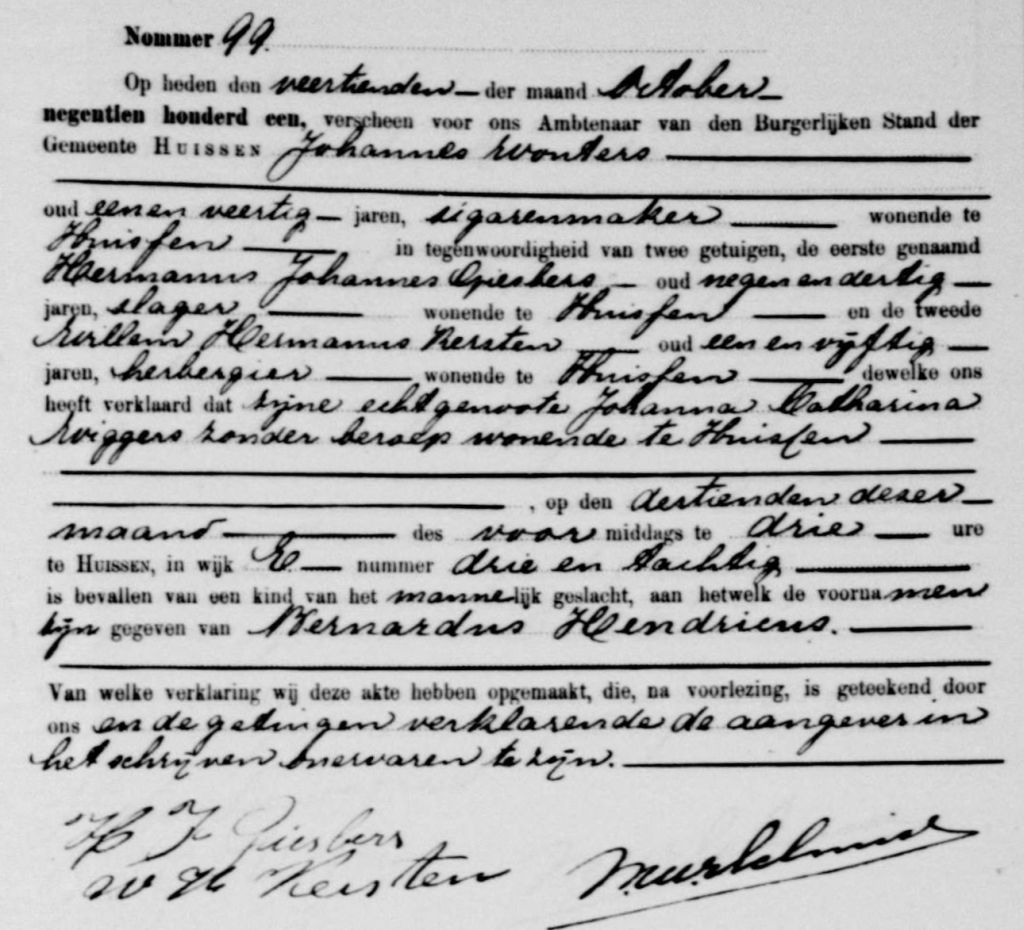 Nommer 99.
Op heden den veertienden der maand October
negentien honderd een, verscheen voor ons Ambtenaar van den Burgerlijken Stand der
Gemeente HUISSEN Johannes Wouters
oud een en veertig jaren, sigarenmaker wonende te
Huissen in tegenwoordigheid van twee getuigen, de eerste genaamd
Hermanus Johannes Giesbers oud negen en dertig
jaren, slager wonende te Huissen en de tweede
Willem Hermanus Kersten oud een en vijftig
jaren, herbergier wonende te Huissen dewelke ons
heeft verklaard dat zijne echtgenoote Johanna Catharina
Wiggers zonder beroep wonende te Huissen
, op den dertienden dezer
maand des voor middags te drie ure
te HUISSEN, in wijk E nummer drie en tachtig
is bevallen van een kind van het mannelijk geslacht, aan hetwelk de voornamen
zijn gegeven van Bernardus Hendricus.
Van welke verklaring wij deze akte hebben opgemaakt, die, na voorlezing, is geteekend door
ons en de getuigen verklarende de aangever in
het schrijven onervaren te zijn.
H J Giesbers
W H Kersten